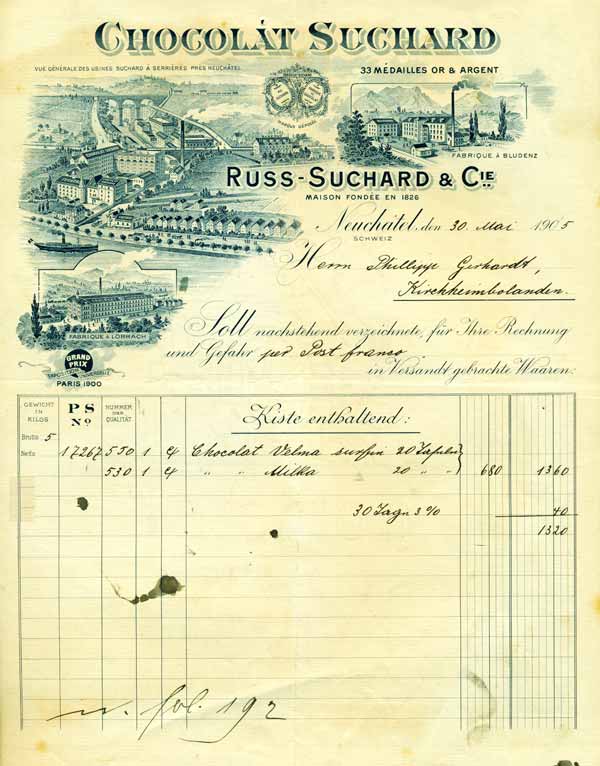 CHOCOLÁT SUCHARD
VUE GÉNÉRALE DES USINES SUCHARD À SERRIÈRES PRÈS NEUCHÂTEL
33 MÉDAILLES OR & ARGENT
FABRIQUE À BLUDENZ
RUSS-SUCHARD & CIE
MAISON FONDÉE EN 1826
Neuchâtel, den 30. Mai 1905
SCHWEIZ
Herrn Phillipp Gerhardt,
Kirchheimbolanden.
FABRIQUE À LÖRRACH
GRAND PRIX
PARIS 1900
Soll nachstehend verzeichnete, für Ihre Rechnung
und Gefahr per Post franco
in Versandt gebrachte Waaren:
GEWICHT IN KILOS
PS No
NUMMER DER QUALITÄT
Kiste enthaltend:
Brutto 5
Netto 17267 550 1 C/ Chocolat Velma surfin 20 Tafeln
530 1 C/ " " Milka 20 " " 680 1360
30 Tagn 3% 40
1320
n. fol. 192